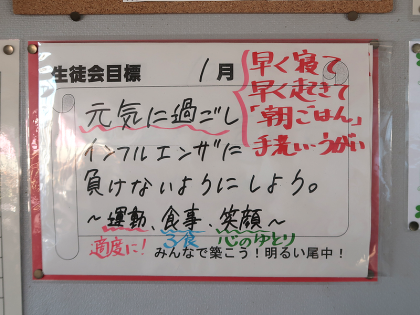 生徒会目標 1月
早く寝て
早く起きて
「朝ごはん」
手洗い・うがい
元気に過ごし
インフルエンザに
負けないようにしよう。
~運動、食事、笑顔~
適度に! 3食 心のゆとり
みんなで築こう!明るい尾中!